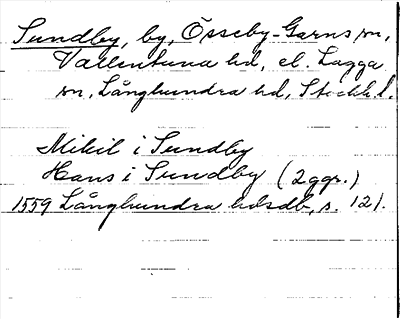 Sundby, by, Össeby-Garns sn,
Vallentuna hd, el. Lagga
sn, Långhundra hd, Stockh.l.
Mikil i Sundby
Hans i Sundby (2 ggr.)
1559 Långhundra hdsdb, s. 121.